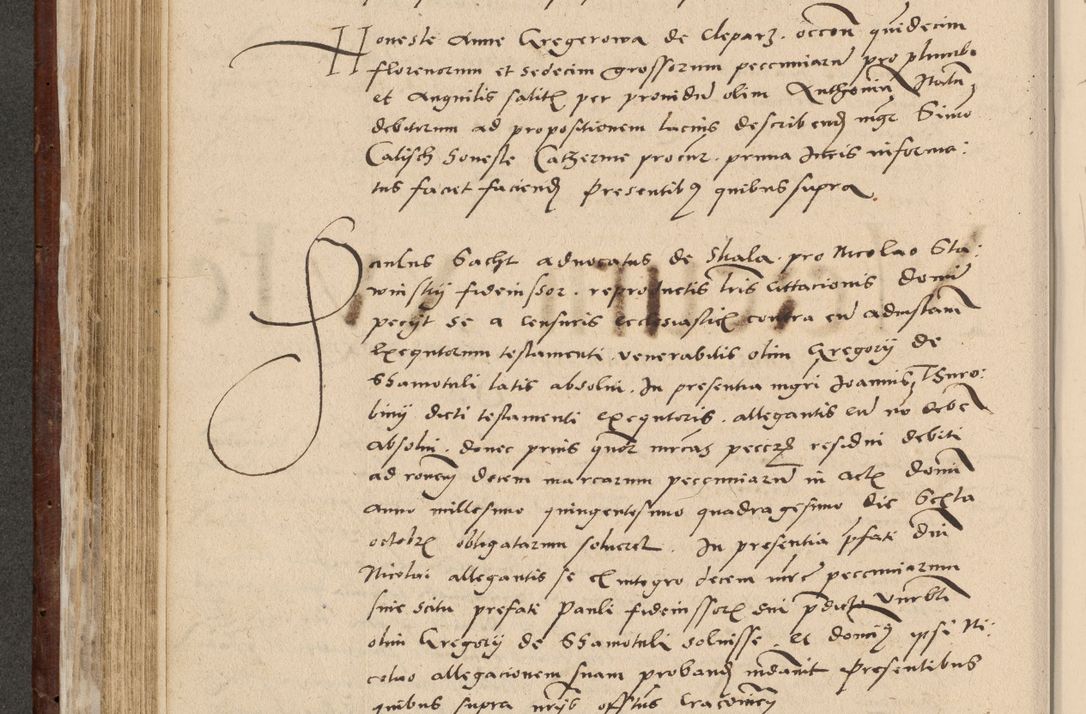 Honeste Anne Gregerowa de Cleparz. occon quidecim
florenorum et sedecim grossorum pecuniarũ pro plumbo
et Anguilis salitis per providũ olim Anthoniũ
debitorum ad propositionem lucius describend mgr Simo
Calisch honeste Catherine procur. prima Iuris informa:
tus facet faciend Presentibq quibus supra
Paulus Gacht advocatus de Skala. pro Nicolao Sta:
winskij fideiussor. reproductis lris Cittacionis domi
pecijt se a Censuris ecclesiasticis contra eũ ad instam
Exequtorum testamenti venerabilis olim Gregorij de
Shamotuli latis absolui. In presentia mgri Ioannis Thuro:
binij dicti testamenti exequtoris. allegantis eũ nõ debe
absolui. donec prius quor mrcas peccrs residui debiti
ad ronem decem marcarum pecuniarũ in actis domi
anno millesimo quingentesimo quadragesimo die Sexta
octobris obligatarum solueret. In presentia pfati dni
Nicolai allegantis se ex integro decem mrc pecuniarum
sine scitu prefati Pauli fideiussoris dni pdicto
olim Gregorij de Shamotuli soluisse. et domi ipsi Ni:
colao allegacionem suam proband indauit Presentibus
quibus supra